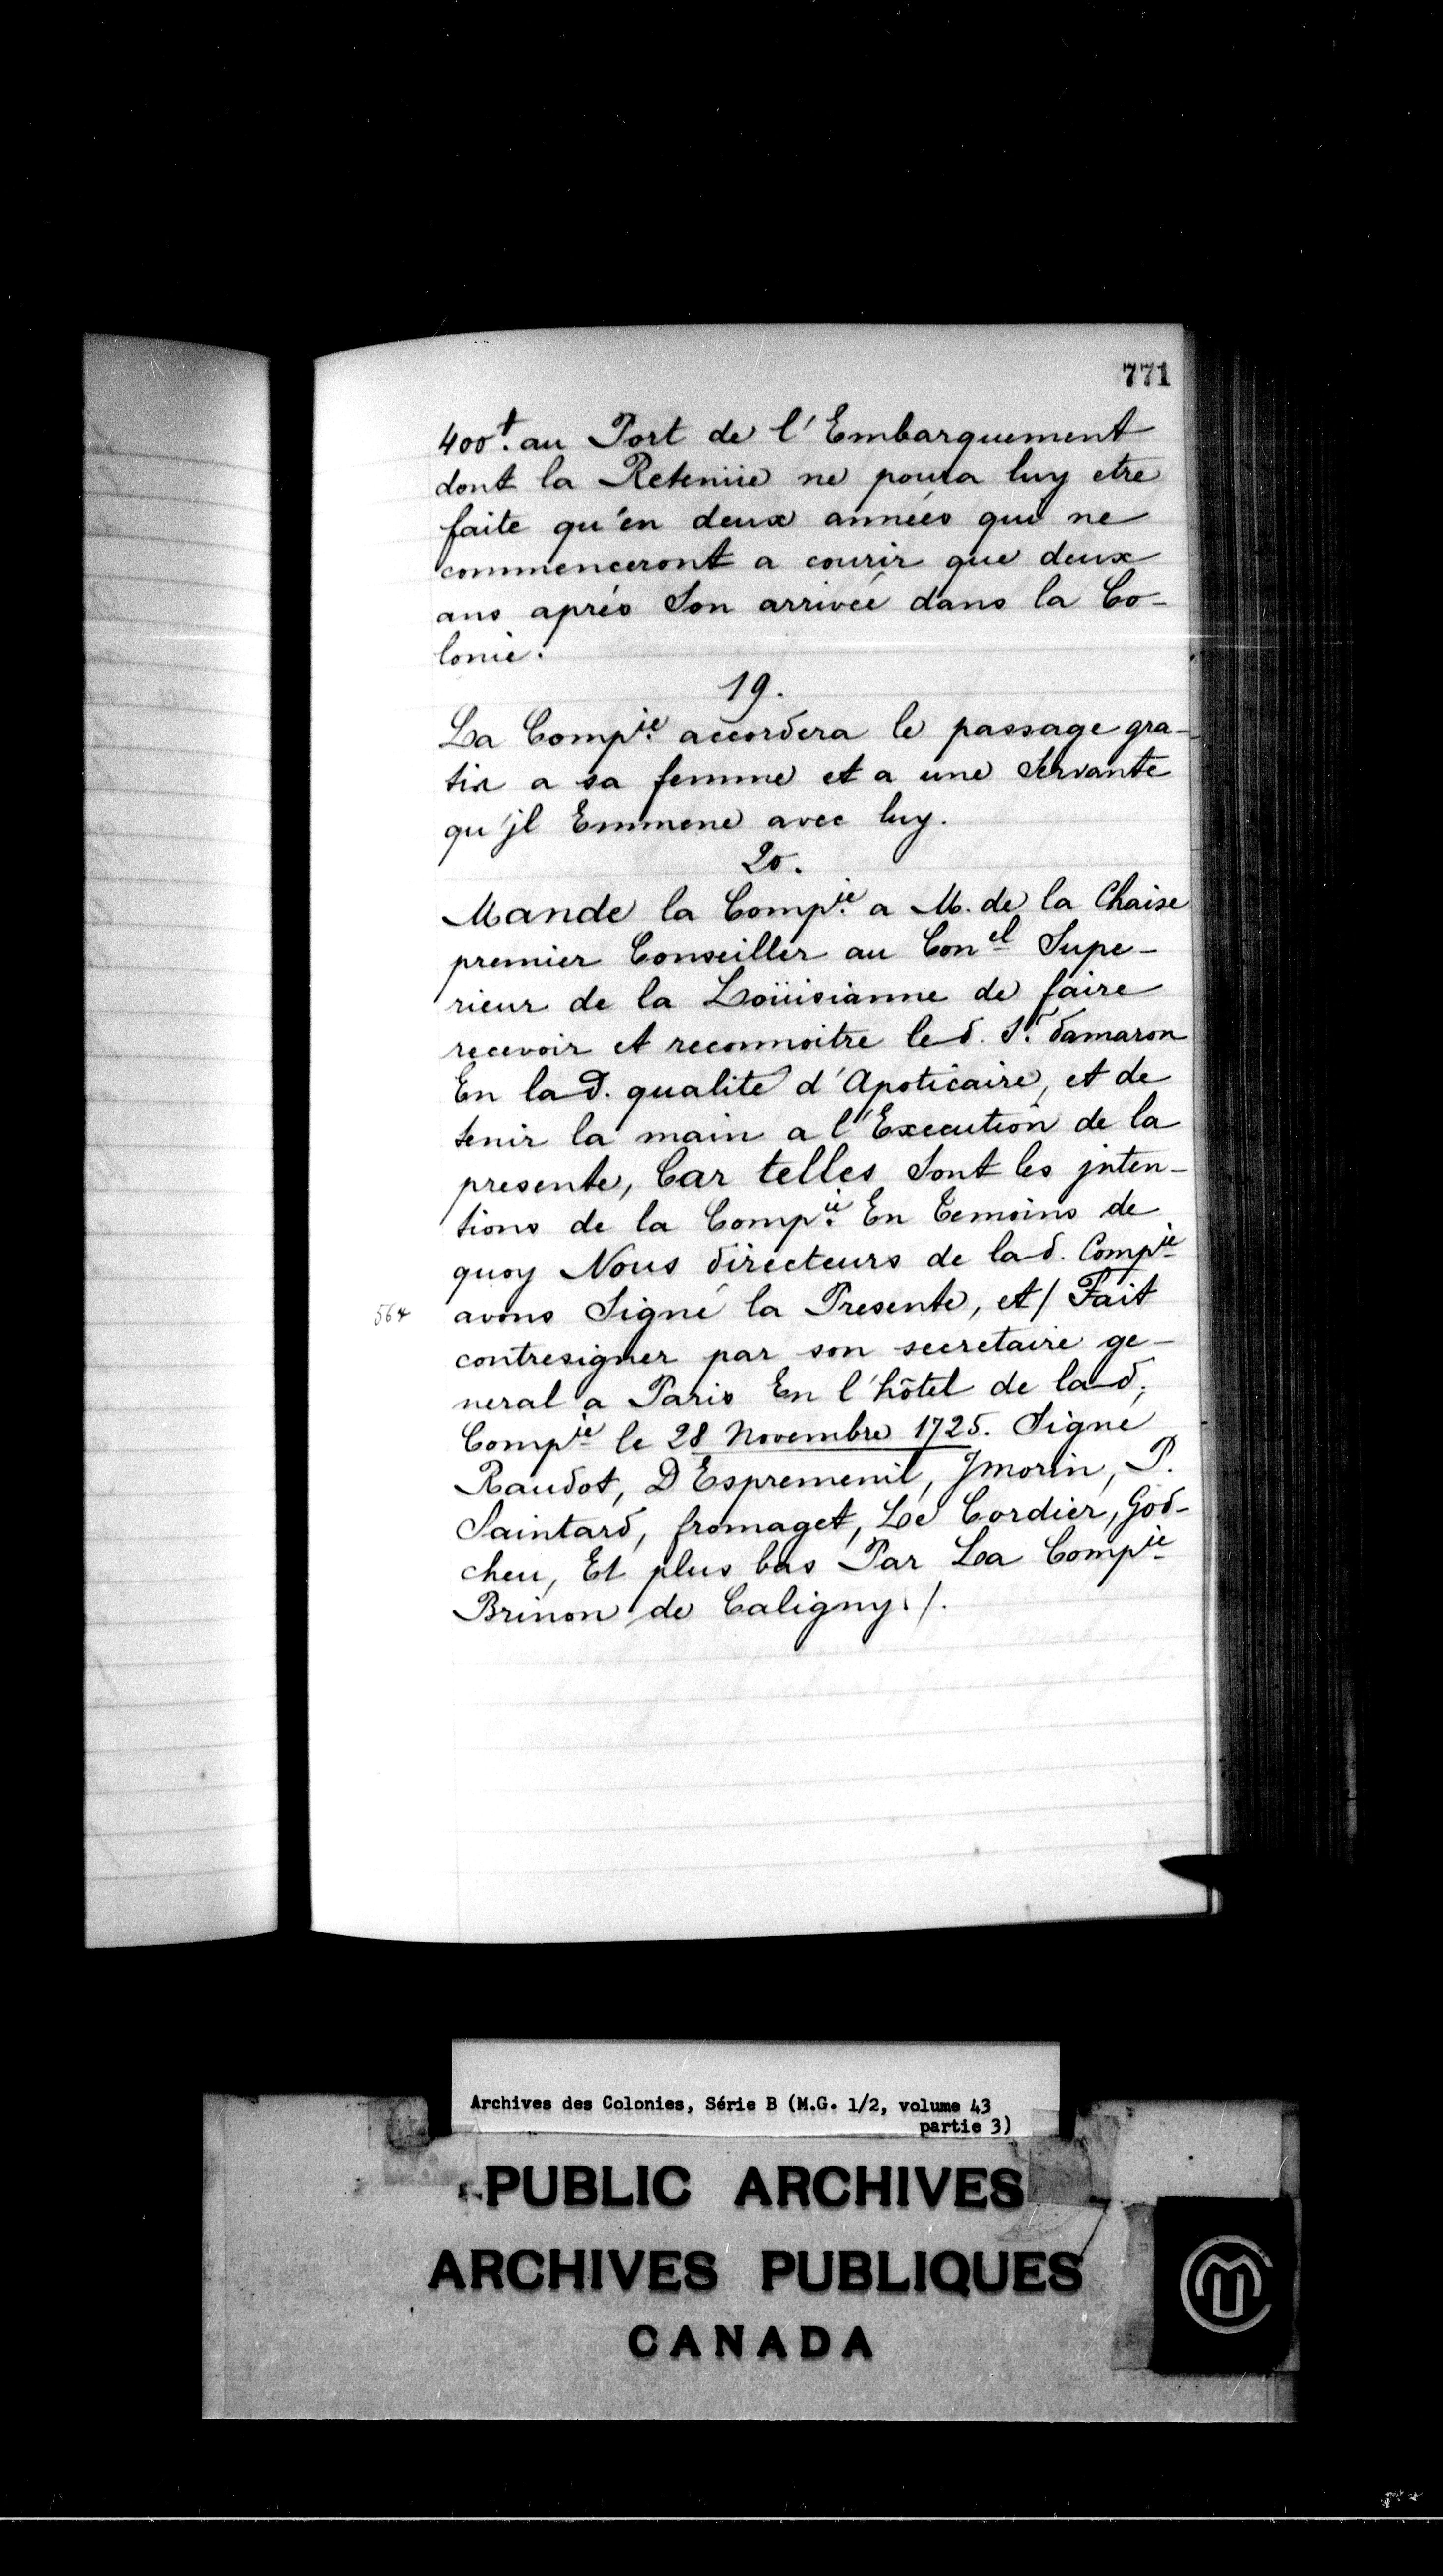 771
400ᵗ. au Port de l'Embarquement
dont la Retenüe ne poura luy etre
faite qu'en deux années qui ne
commenceront a courir que deux
ans aprés Son arriveé dans la Co-
lonie.
19.
La Compⁱᵉ. accordera le passage gra-
tis a sa femme et a une Servante
qu'jl Emmene avec luy.
20.
Mande la Compⁱᵉ. a M. de la Chaise
premier Conseiller au Conᵉˡ Supe-
rieur de la Loüisianne de faire
recevoir et reconnoitre led. Sʳ. damaron
En lad. qualité d'Apoticaire, et de
tenir la main a l'Execution de la
presente, Car telles Sont les jnten-
tions de la Compⁱᵉ. En temoins de
quoy Nous directeurs de lad. Compⁱᵉ
564 avons Signé la Presente, et / Fait
contresigner par son secretaire ge-
neral a Paris En l'hôtel de lad.
Compⁱᵉ le 28 Novembre 1725. Signé
Raudot, D'Espremenil, Jmorin, P.
Saintard, fromaget, Le Cordier, God-
cheu, Et plus bas Par La Compⁱᵉ
Brinon de Caligny. /.
Archives des Colonies, Série B (M.G. 1/2, volume 43
partie 3)
PUBLIC ARCHIVES
ARCHIVES PUBLIQUES
CANADA